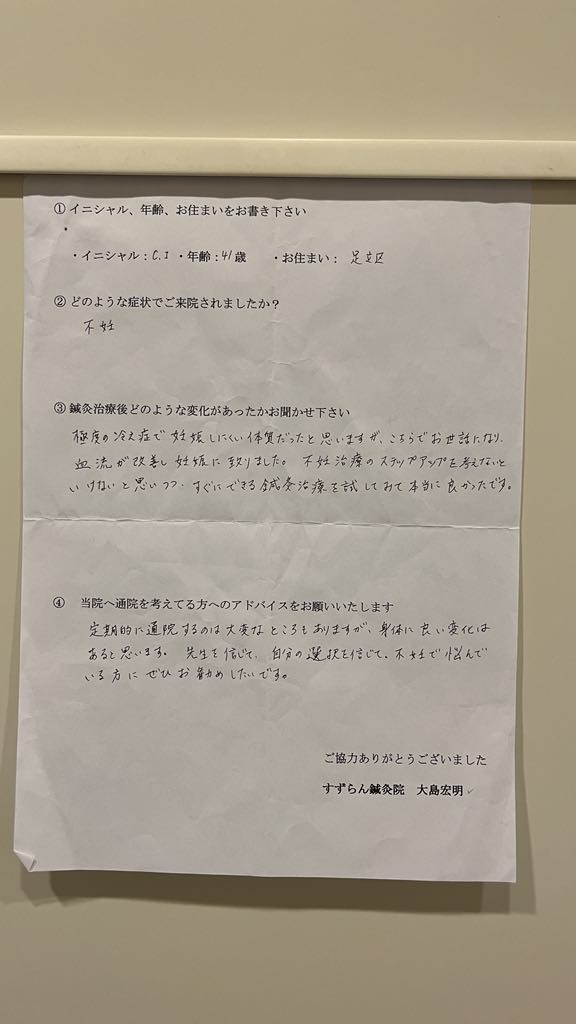 ① イニシャル、年齢、お住まいをお書き下さい
・イニシャル：C.I ・年齢：41歳 ・お住まい： 足立区
② どのような症状でご来院されましたか？
不妊
③ 鍼灸治療後どのような変化があったかお聞かせ下さい
極度の冷え症で妊娠しにくい体質だったと思いますが、こちらでお世話になり、
血流が改善し妊娠に致りました。不妊治療のステップアップを考えないと
いけないと思いつつ、すぐにできる鍼灸治療を試してみて本当に良かったです。
④ 当院へ通院を考えてる方へのアドバイスをお願いいたします
定期的に通院するのは大変なところもありますが、身体に良い変化は
あると思います。先生を信じて、自分の選択を信じて、不妊で悩んで
いる方にぜひお勧めしたいです。
ご協力ありがとうございました
すずらん鍼灸院 大島宏明